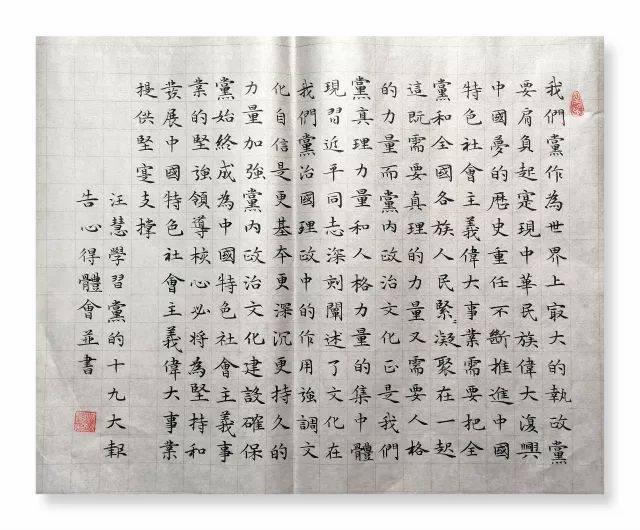 我們黨作為世界上㝡大的執政黨
要肩負起寔現中華民族偉大復興
中國夢的歷史重任不斷推進中國
特色社會主義偉大事業需要把全
黨和全國各族人民緊〻凝聚在一起
這既需要真理的力量又需要人格
的力量而黨內政治文化正是我們
黨真理力量和人格力量的集中體
現習近平同志深刻闡述了文化在
我們黨治國理政中的作用強調文
化自信是更基夲更深沉更持久的
力量加強黨內政治文化建設確保
黨始終成為中國特色社會主義事
業的堅強領導核心必將為堅持和
發展中國特色社會主義偉大事業
提供堅寔支撐
汪慧學習黨的十九大報
告心得體會並書